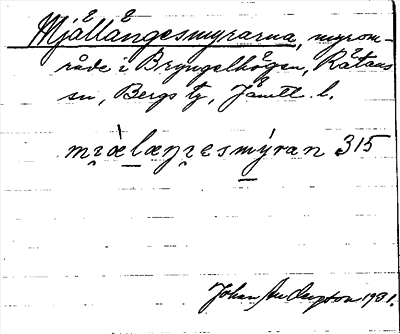 Mjållångesmyrarna, myrom-
råde i Bryngelhögen, Råtans
sn, Bergs tg, Jämtl. l.
mɪ̯àlæŋɪ̯esmýran 315
Johan 1931.